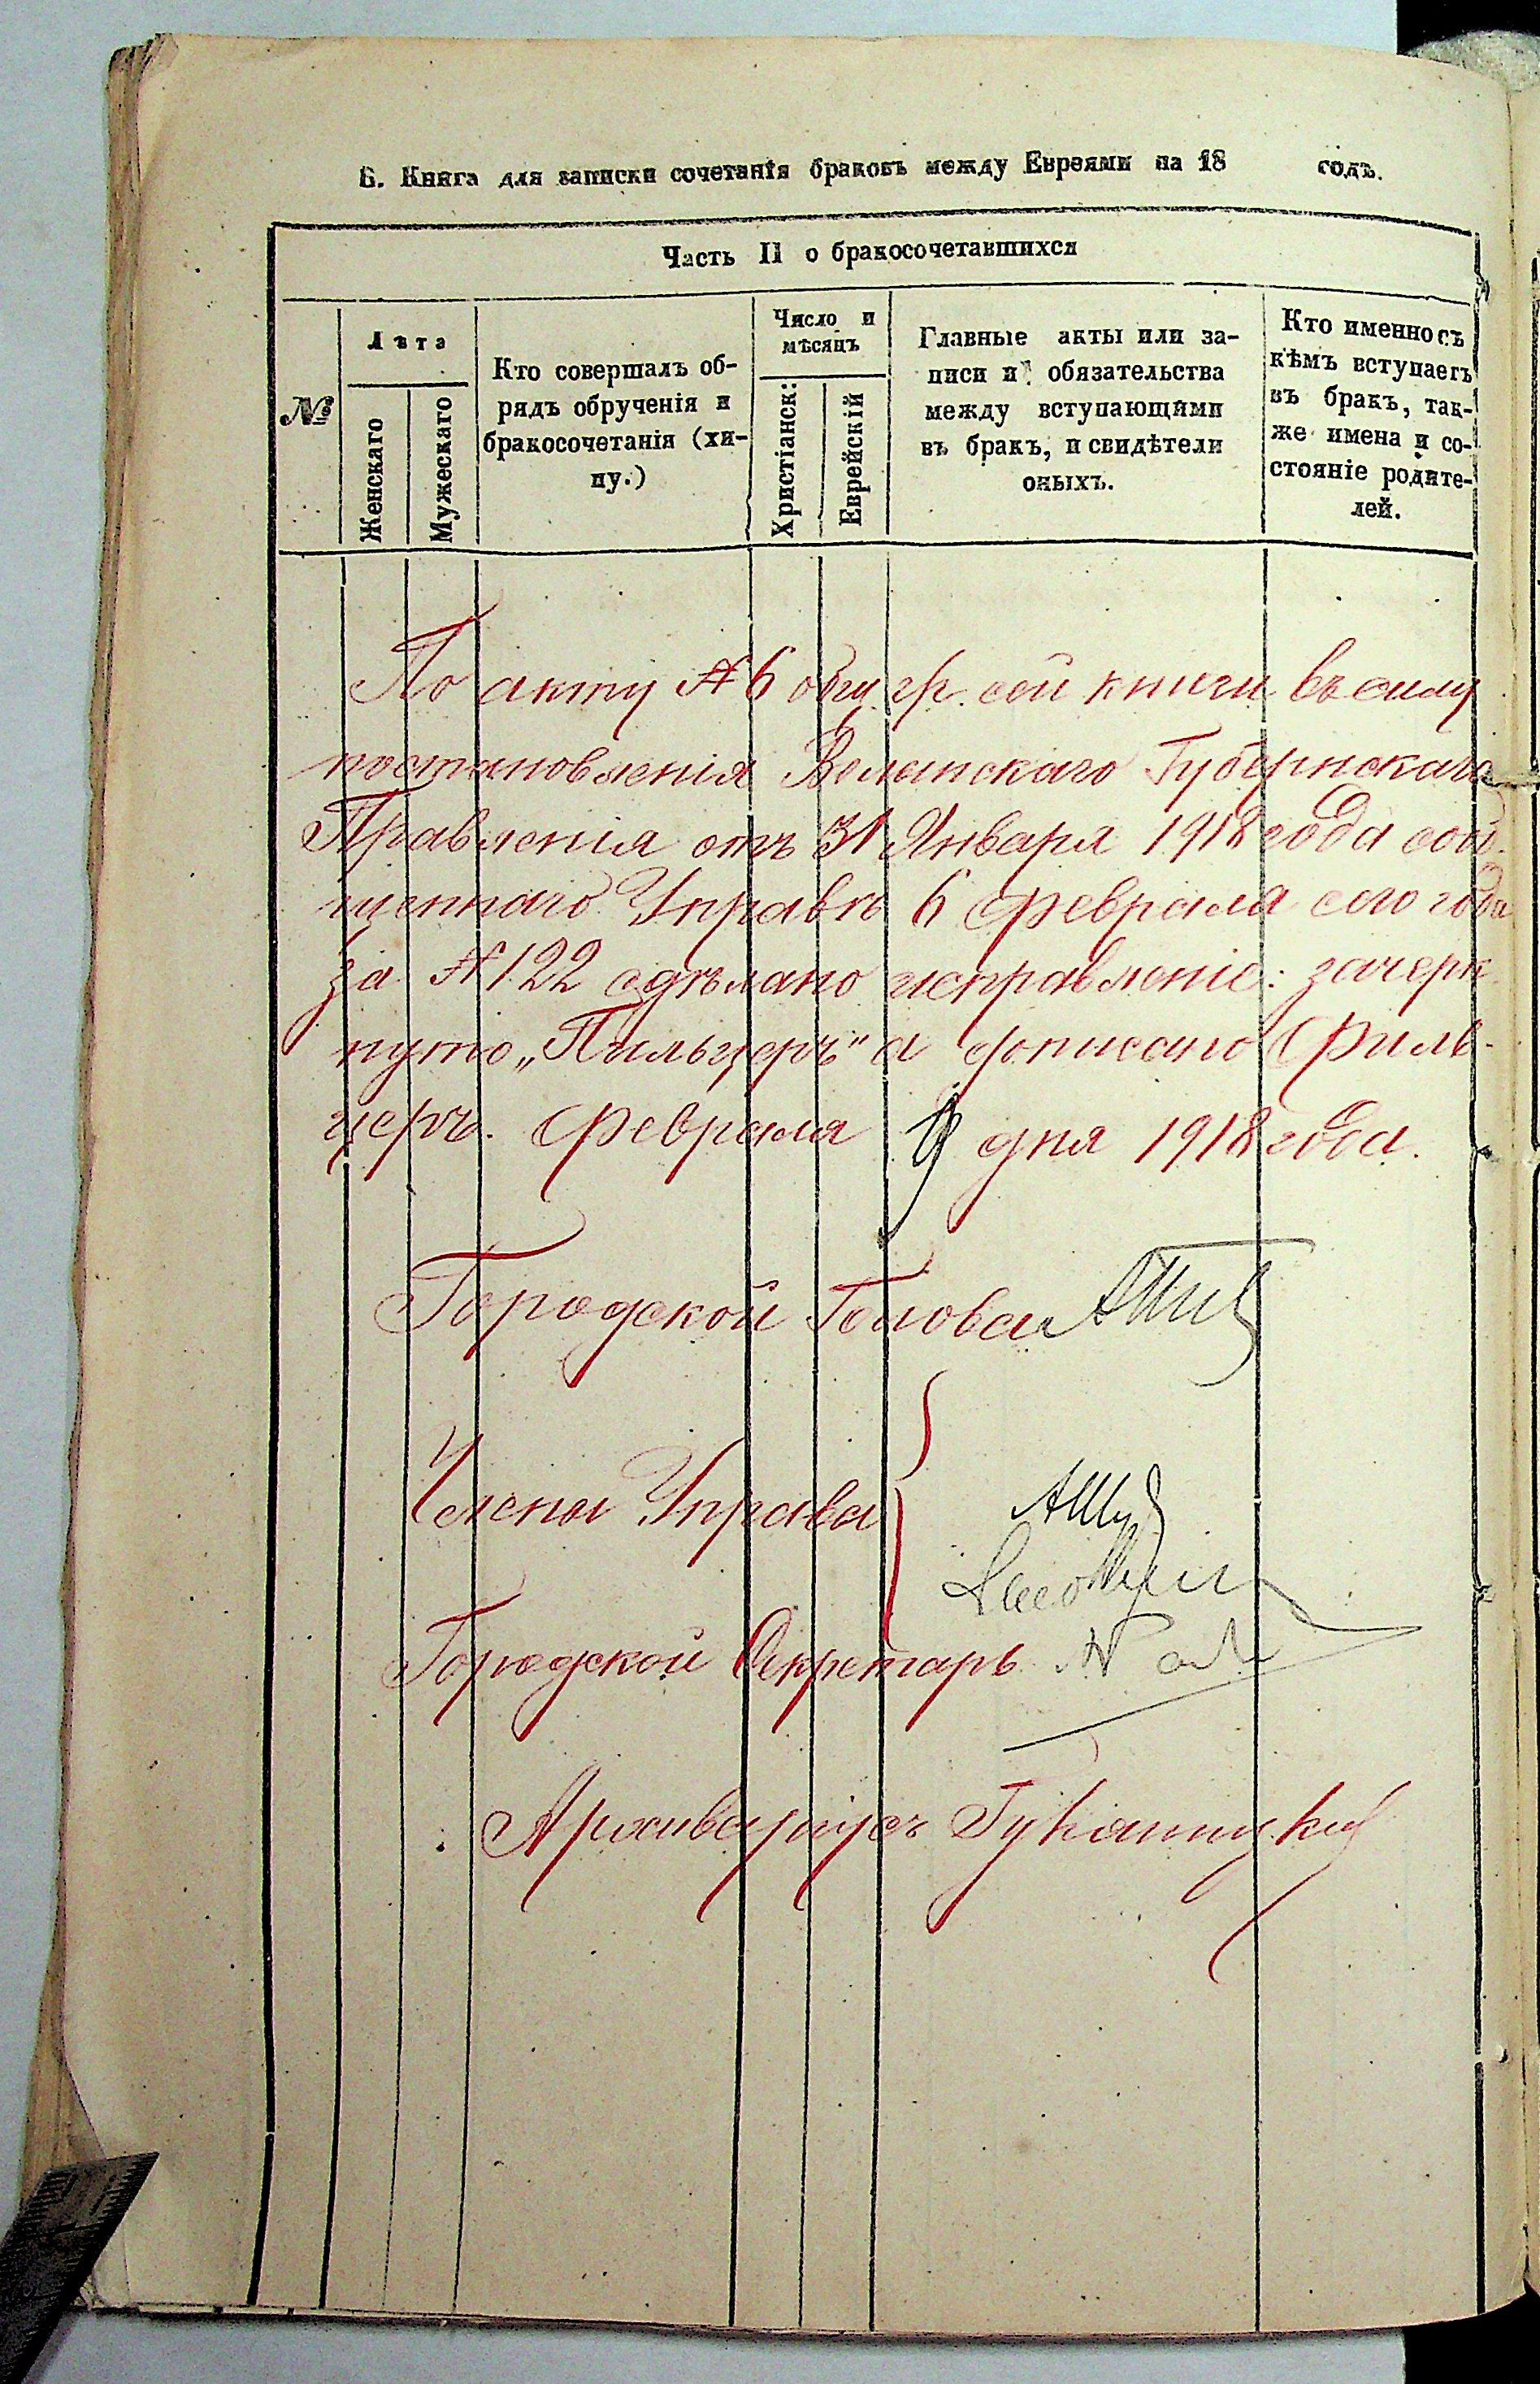 Б. Книга для записки сочетанія браковъ между Евреями на 18 годъ.
Часть II о бракосочетавшихся
№
Лѣта
Женскаго
Мужескаго
Кто совершалъ об-
рядъ обрученія и
бракосочетанія (хи-
пу.)
Число и
мѣсяцъ
Христіанск:
Еврейскій
Главные акты или за-
писи и обязательства
между вступающими
въ бракъ, и свидѣтели
оныхъ.
Кто именно съ
кѣмъ вступаетъ
въ бракъ, так-
же имена и со-
стояніе родите-
лей.
По акту № 6 общ. гр. сей книги въ силу
постановленія Волынскаго Губернскаго
Правленія отъ 31 Января 1918 года сооб-
щеннаго Управѣ 6 Февраля сего года
за № 122 сдѣлано исправленіе: зачерк-
нуто „Пильцеръ" а дописано Филь-
церъ. Февраля 9 дня 1918 года.
Городской Голова
Члены Управы
Городской Секретарь
Архиваріусъ